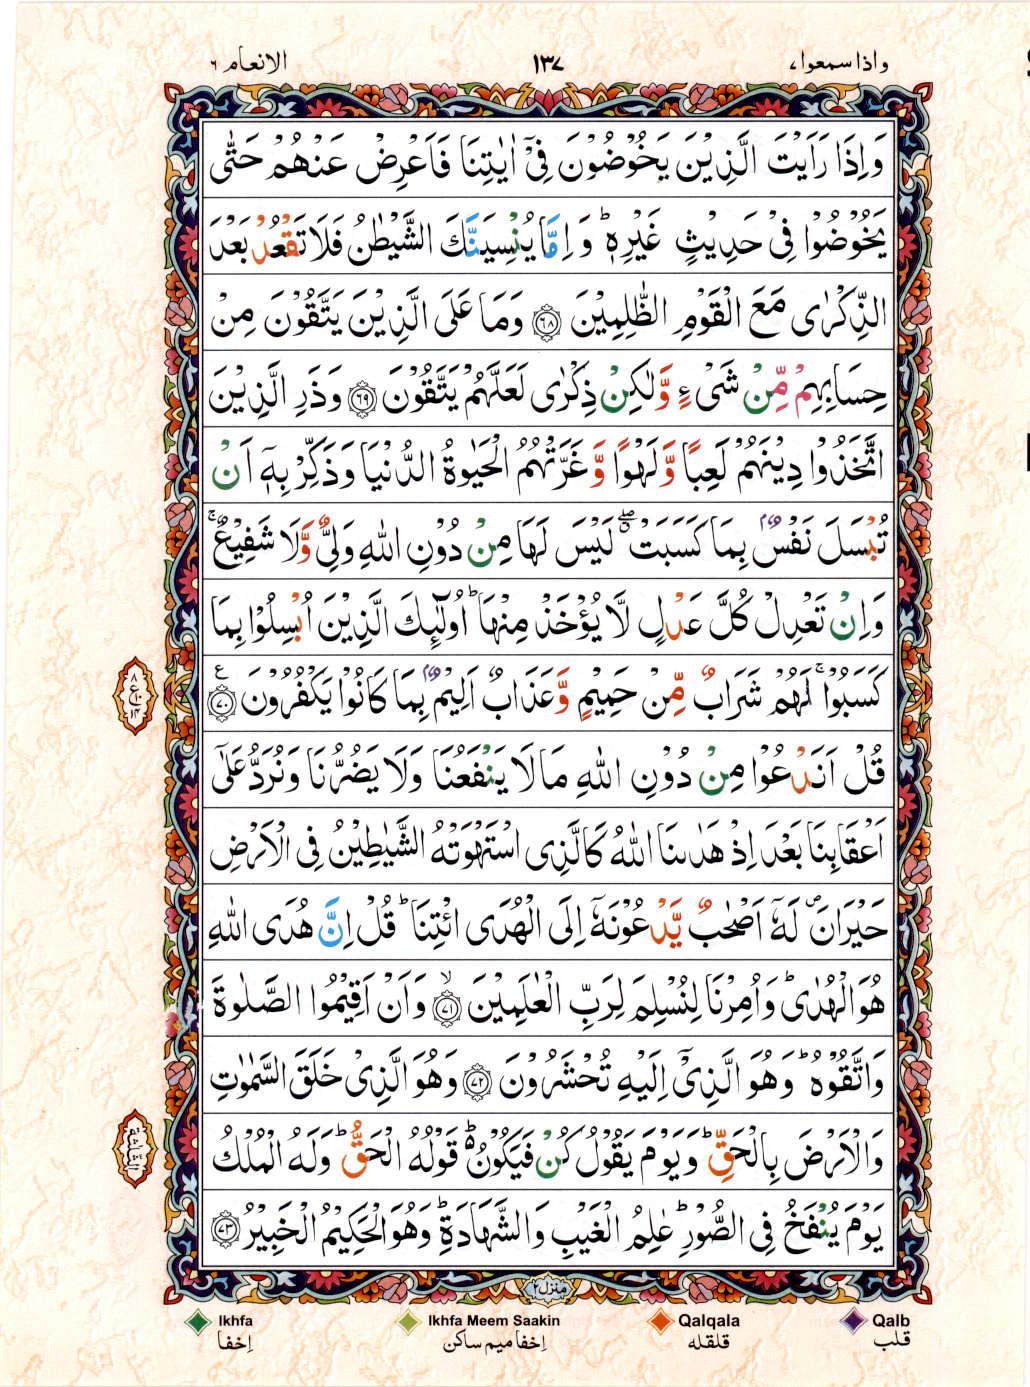 واذا سمعوا ٧
١٣٧
الانعام ٦
وَاِذَا رَاَيْتَ الَّذِيْنَ يَخُوْضُوْنَ فِيْٓ اٰيٰتِنَا فَاَعْرِضْ عَنْهُمْ حَتّٰى
يَخُوْضُوْا فِيْ حَدِيْثٍ غَيْرِهٖؕ وَ اِمَّا يُنْسِيَنَّكَ الشَّيْطٰنُ فَلَا تَقْعُدْ بَعْدَ
الذِّكْرٰى مَعَ الْقَوْمِ الظّٰلِمِيْنَ ۝٦٨ وَمَا عَلَى الَّذِيْنَ يَتَّقُوْنَ مِنْ
حِسَابِهِمْ مِّنْ شَيْءٍ وَّلٰكِنْ ذِكْرٰى لَعَلَّهُمْ يَتَّقُوْنَ ۝٦٩ وَذَرِ الَّذِيْنَ
اتَّخَذُوْا دِيْنَهُمْ لَعِبًا وَّلَهْوًا وَّ غَرَّتْهُمُ الْحَيٰوةُ الدُّنْيَا وَذَكِّرْ بِهٖٓ اَنْ
تُبْسَلَ نَفْسٌۢ بِمَا كَسَبَتْۖ لَيْسَ لَهَا مِنْ دُوْنِ اللّٰهِ وَلِيٌّ وَّلَا شَفِيْعٌۚ
وَاِنْ تَعْدِلْ كُلَّ عَدْلٍ لَّا يُؤْخَذْ مِنْهَاؕ اُولٰٓئِكَ الَّذِيْنَ اُبْسِلُوْا بِمَا
كَسَبُوْاۚ لَهُمْ شَرَابٌ مِّنْ حَمِيْمٍ وَّعَذَابٌ اَلِيْمٌۢ بِمَا كَانُوْا يَكْفُرُوْنَ ۝٧٠ ع
٨
ع ١٠
١٤
قُلْ اَنَدْعُوْا مِنْ دُوْنِ اللّٰهِ مَا لَا يَنْفَعُنَا وَلَا يَضُرُّنَا وَنُرَدُّ عَلٰٓى
اَعْقَابِنَا بَعْدَ اِذْ هَدٰىنَا اللّٰهُ كَالَّذِى اسْتَهْوَتْهُ الشَّيٰطِيْنُ فِى الْاَرْضِ
حَيْرَانَ۪ لَهٗٓ اَصْحٰبٌ يَّدْعُوْنَهٗٓ اِلَى الْهُدَى ائْتِنَاؕ قُلْ اِنَّ هُدَى اللّٰهِ
هُوَ الْهُدٰىؕ وَاُمِرْنَا لِنُسْلِمَ لِرَبِّ الْعٰلَمِيْنَ ۝٧١ۙ وَاَنْ اَقِيْمُوا الصَّلٰوةَ
وَاتَّقُوْهُؕ وَهُوَ الَّذِيْٓ اِلَيْهِ تُحْشَرُوْنَ ۝٧٢ وَهُوَ الَّذِيْ خَلَقَ السَّمٰوٰتِ
وَالْاَرْضَ بِالْحَقِّؕ وَيَوْمَ يَقُوْلُ كُنْ فَيَكُوْنُؕ۬ قَوْلُهُ الْحَقُّؕ وَلَهُ الْمُلْكُ
الثلٰثة
يَوْمَ يُنْفَخُ فِى الصُّوْرِؕ عٰلِمُ الْغَيْبِ وَالشَّهَادَةِؕ وَهُوَ الْحَكِيْمُ الْخَبِيْرُ ۝٧٣
منزل ٢
Ikhfa
Ikhfa Meem Saakin
Qalqala
Qalb
اِخفا
اِخفا میم ساکن
قلقلہ
قلب